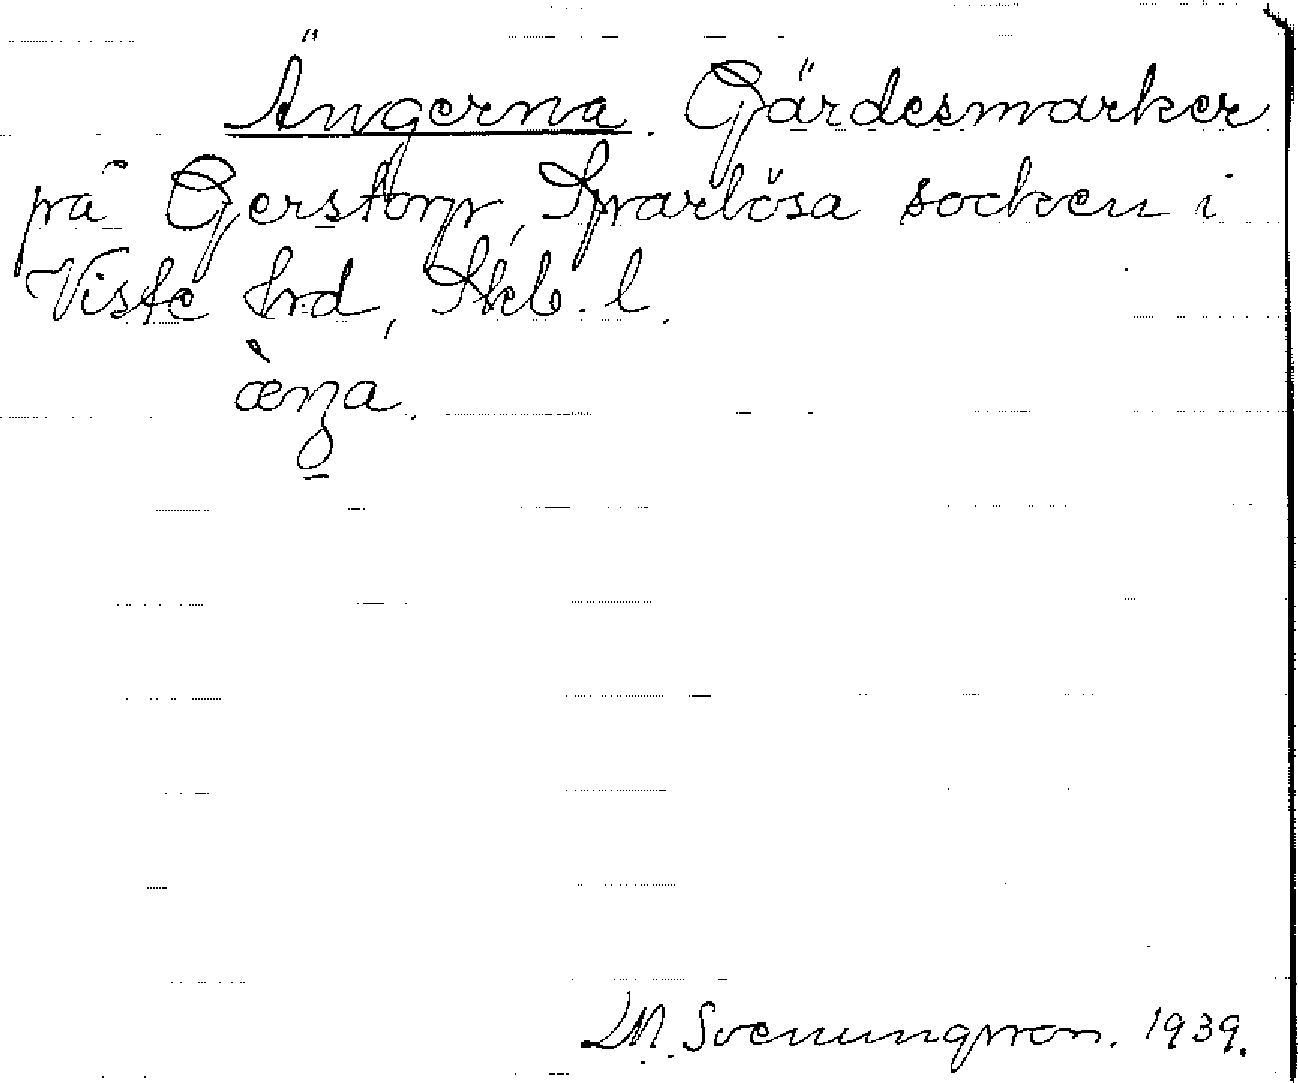 Ängerna. Gärdesmarker
på Gerstorp, Sparlösa socken i
Viste hrd, Skb. l.
D.M. Svenungsson. 1939.